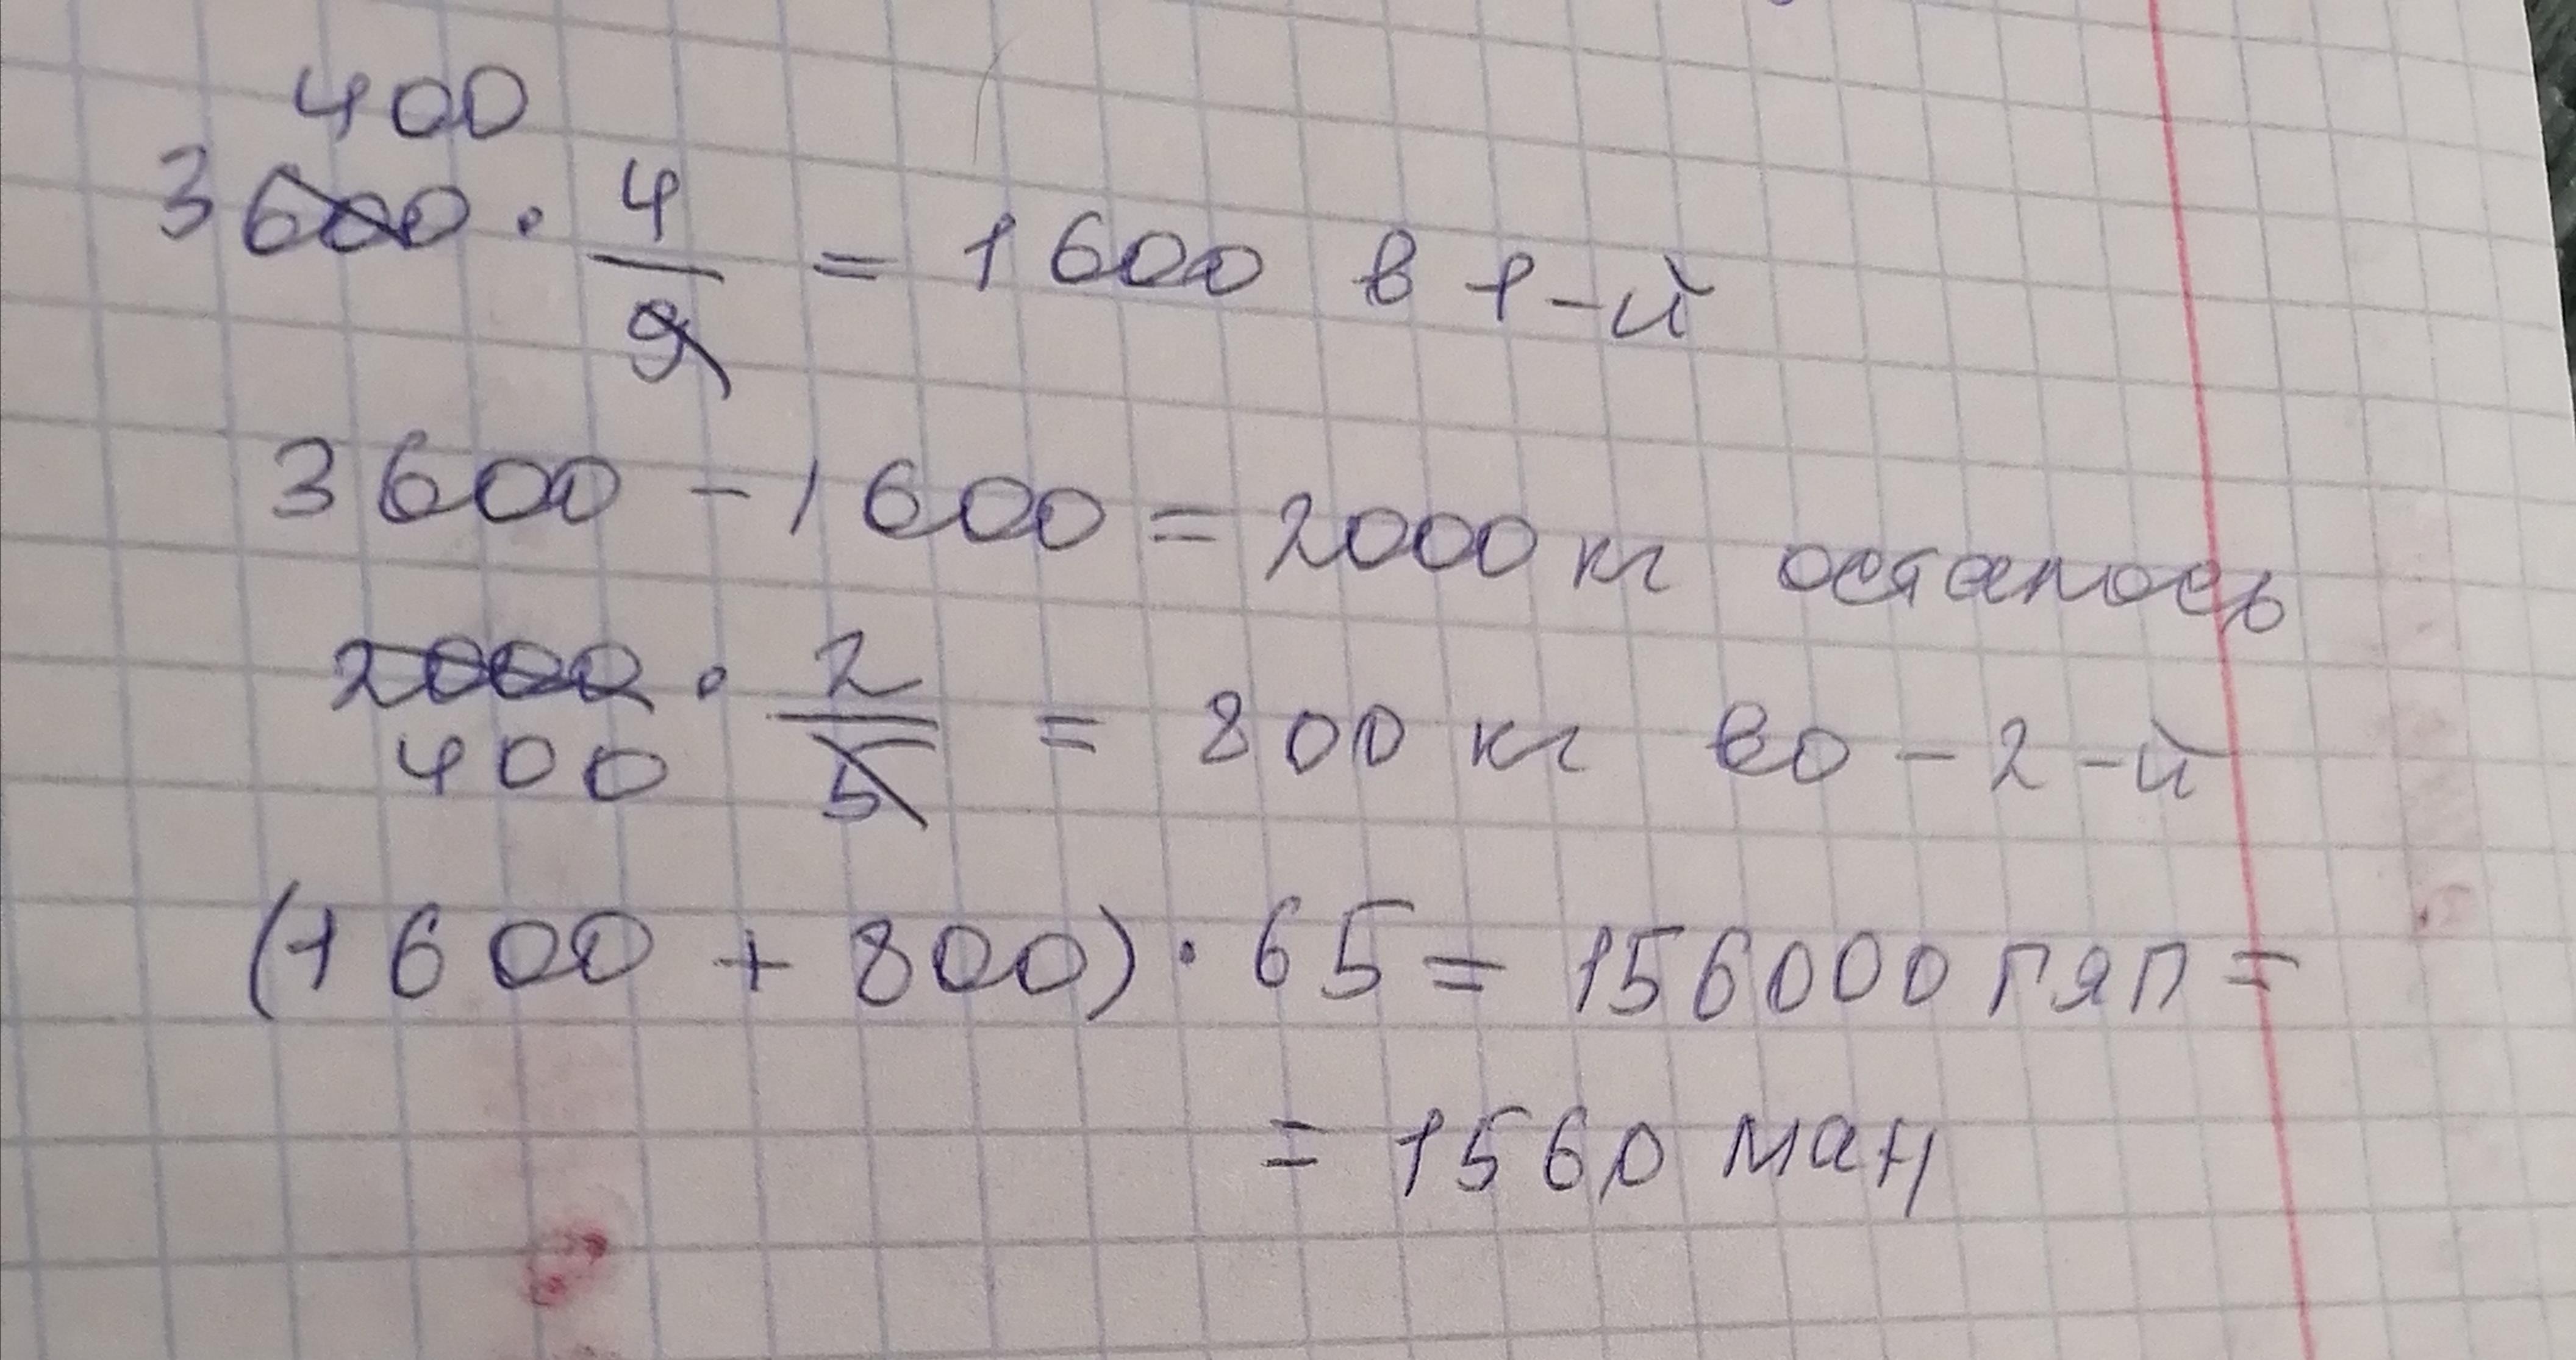 400
3600 · 4/9 = 1600 в 1-й
3600 - 1600 = 2000 кг осталось
2000 · 2/5 = 800 кг во - 2 - й
400
(1600 + 800) · 65 = 156000 гяп =
= 1560 ман